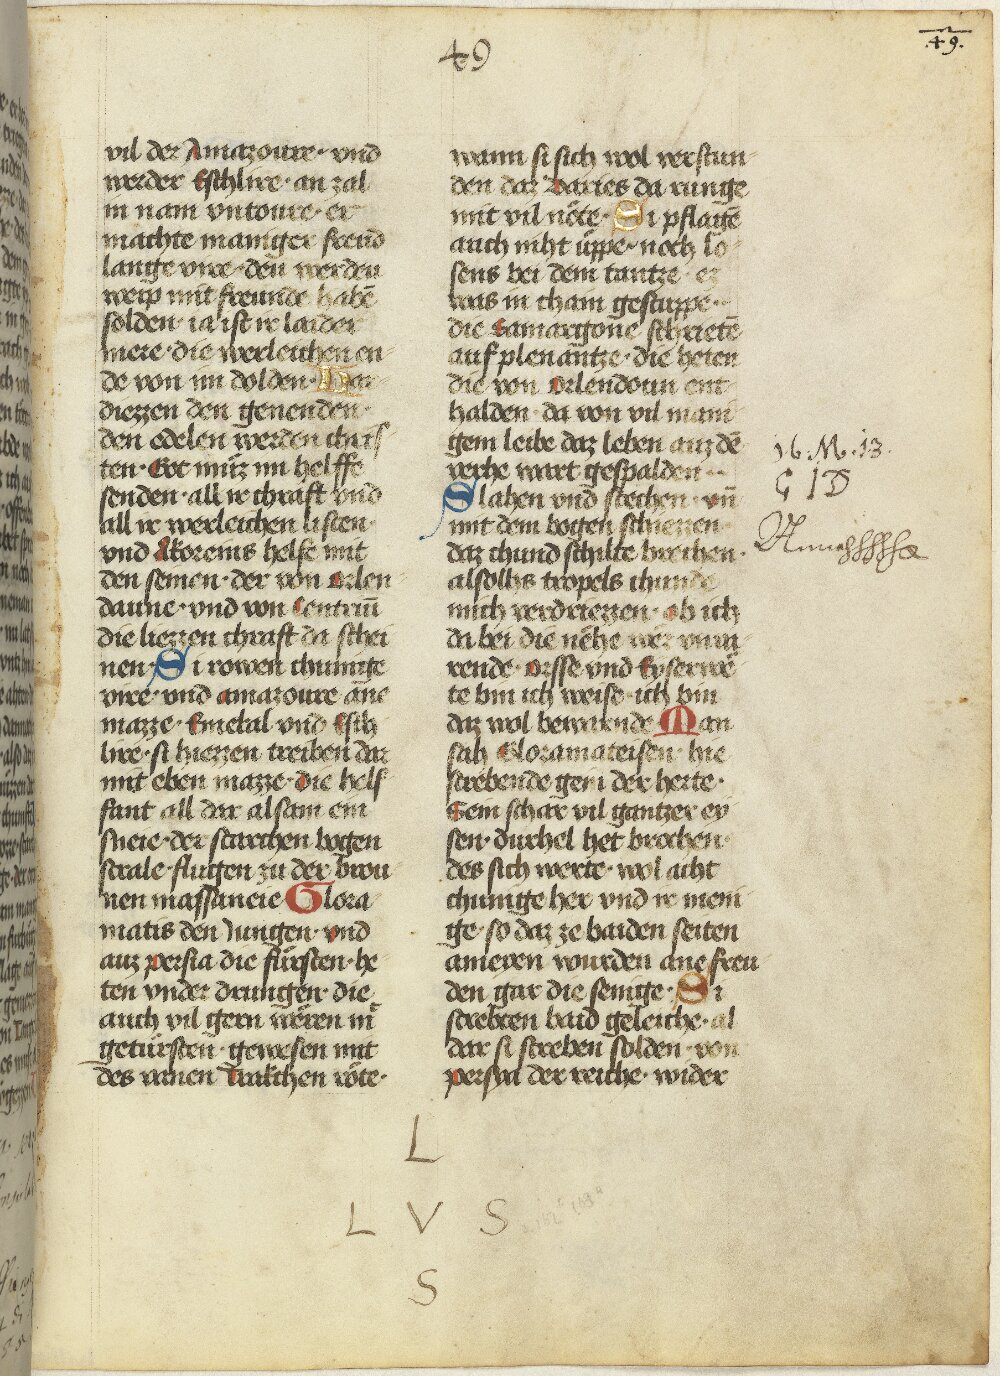 49
49.
vil der Amazoure · vnd
werder Eschlire · an zal
in nam vntoure · er
machte maniger freud
lange vire · den werden
weip mit freunde habē
solden · ia ist ir laider
mere · die werleichen en
de von im dolden · Har
diezzen den genenden ·
den edelen werden chris
ten · Got müz im helffe
senden · all ir chraft vnd
all ir werleichen listen ·
vnd Akoreins helfe mit
den seinen · der von Orlen
daune · vnd von Centriū
die liezzen chraft da schei
nen · Si rowen chunige
vire · vnd amazoure ane
mazze · Emelal vnd Esch
lire · si hiezzen treiben dar
mit eben mazze · die helf
fant all dar alsam ein
sneie · der starchen bogen
strale · flugen zu der brou
nen massaneie Glora
matis den Iungen · vnd
auz persia die fürsten · he
ten vnder drungen · die
auch vil gern wären in
getürsten · gewesen mit
des vanen Trakchen röte ·
wann si sich wol verstun
den daz Daries da runge
mit vil nöte · Si pflagē
auch niht üppe · noch lo
sens bei dem tantze · ez
was in cham gestuppe ·
die Samargone schrietē
auf plenantze · die heten
die von Orlendoun ent
halden · da von vil mani
gem leibe daz leben auz dē
verhe wart gespalden ··
Slahen vnd stechen · vn̄
mit dem bogen schiezzen
daz chund schilte brechen ·
alsolhs tropels chunde
mich verdriezzen · ob ich
da bei die nehe wer vmm
rende · Orsse vnd Eyserwē
te bin ich weise · ich bin
daz wol bewarnde Man
sah Gloramateisen · hie
strebende gen der herte ·
Sein schar vil gantzer ey
sen · durhel het brochen ·
des sich werte · wol acht
chunige her vnd ir meni
ge · so daz ze baiden seiten
ameyen wurden ane freu
den gar die senige · Si
strebten baid geleiche · al
dar si streben solden · von
persya der reiche · wider
16 · M · 13 ·
G I D
L
L V S
S